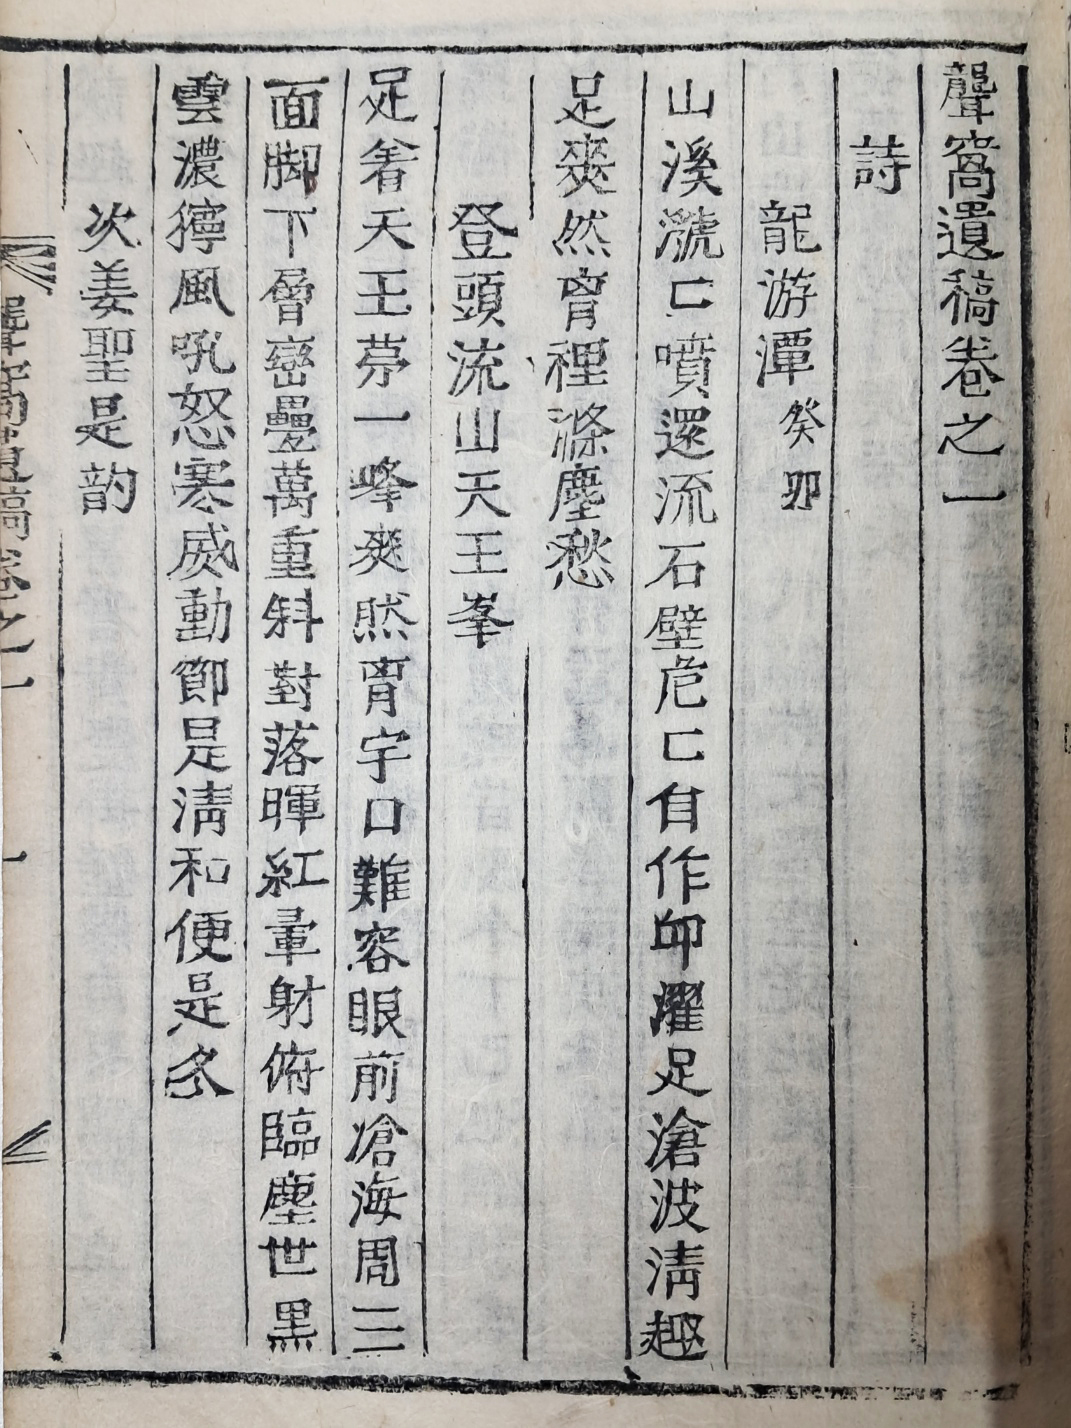 聾窩遺稿卷之一
詩
龍游潭 癸卯
山溪㶁匸噴還流石壁危匸自作卬濯足滄波淸趣
足爽然胷裡滌塵愁
登頭流山天王峯
足着天王第一峰爽然胷宇口難容眼前滄海周三
面脚下層巒疊萬重斜對落暉紅暈射俯臨塵世黑
雲濃獰風吼怒寒威動節是淸和便是冬
次姜聖是韵
聾窩遺稿卷之一
一